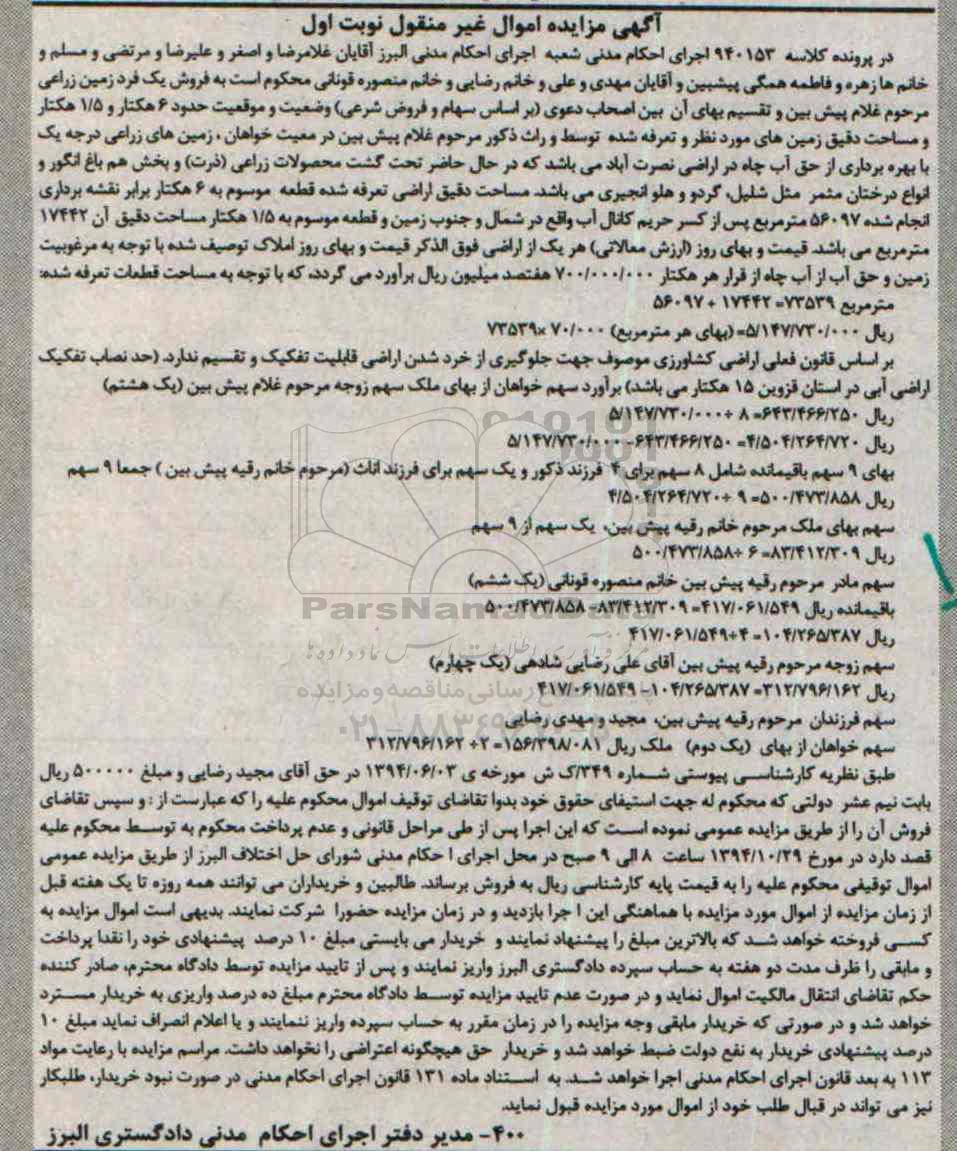 آگهی مزایده اموال غیر منقول نوبت اول
در پرونده کلاسه ۹۴۰۱۵۳ اجرای احکام مدنی شعبه اجرای احکام مدنی البرز آقایان غلامرضا و اصغر و علیرضا و مرتضی و مسلم و
خانم ها زهره و فاطمه همگی پیشبین و آقایان مهدی و علی و خانم رضایی و خانم منصوره قونانی محکوم است به فروش یک فرد زمین زراعی
مرحوم غلام پیش بین و تقسیم بهای آن بین اصحاب دعوی (بر اساس سهام و فروض شرعی) وضعیت و موقعیت حدود ۶ هکتار و ۱/۵ هکتار
و مساحت دقیق زمین های مورد نظر و تعرفه شده توسط وراث ذکور مرحوم غلام پیش بین در معیت خواهان ، زمین های زراعی درجه یک
با بهره برداری از حق آب چاه در اراضی نصرت آباد می باشد که در حال حاضر تحت گشت محصولات زراعی (ذرت) و بخش هم باغ انگور و
انواع درختان مثمر مثل شلیل، گردو و هلو انجیری می باشد. مساحت دقیق اراضی تعرفه شده قطعه موسوم به ۶ هکتار برابر نقشه برداری
انجام شده ۵۶۰۹۷ مترمربع پس از کسر حریم کانال آب واقع در شمال و جنوب زمین و قطعه موسوم به ۱/۵ هکتار مساحت دقیق آن ۱۷۴۴۲
مترمربع می باشد. قیمت و بهای روز (ارزش معالاتی) هر یک از اراضی فوق الذکر قیمت و بهای روز املاک توصیف شده با توجه به مرغوبیت
زمین و حق آب از آب چاه از قرار هر هکتار ۷۰۰/۰۰۰/۰۰۰ هفتصد میلیون ریال برآورد می گردد، که با توجه به مساحت قطعات تعرفه شده:
مترمربع ۷۳۵۳۹= ۱۷۴۴۲ + ۵۶۰۹۷
ریال ۵/۱۴۷/۷۳۰/۰۰۰= (بهای هر مترمربع) ۷۰/۰۰۰ ×۷۳۵۳۹
بر اساس قانون فعلی اراضی کشاورزی موصوف جهت جلوگیری از خرد شدن اراضی قابلیت تفکیک و تقسیم ندارد. (حد نصاب تفکیک
اراضی آبی در استان قزوین ۱۵ هکتار می باشد) برآورد سهم خواهان از بهای ملک سهم زوجه مرحوم غلام پیش بین (یک هشتم)
ریال ۶۴۳/۴۶۶/۲۵۰= ۸ ÷۵/۱۴۷/۷۳۰/۰۰۰
ریال ۴/۵۰۴/۲۶۴/۷۲۰= ۶۴۳/۴۶۶/۲۵۰- ۵/۱۴۷/۷۳۰/۰۰۰
بهای ۹ سهم باقیمانده شامل ۸ سهم برای ۴ فرزند ذکور و یک سهم برای فرزند اناث (مرحوم خانم رقیه پیش بین ) جمعا ۹ سهم
ریال ۵۰۰/۴۷۳/۸۵۸= ۹ ÷۴/۵۰۴/۲۶۴/۷۲۰
سهم بهای ملک مرحوم خانم رقیه پیش بین، یک سهم از ۹ سهم
ریال ۸۳/۴۱۲/۳۰۹= ۶ ÷۵۰۰/۴۷۳/۸۵۸
سهم مادر مرحوم رقیه پیش بین خانم منصوره قونانی (یک ششم)
باقیمانده ریال ۴۱۷/۰۶۱/۵۴۹= ۸۳/۴۱۲/۳۰۹- ۵۰۰/۴۷۳/۸۵۸
ریال ۱۰۴/۲۶۵/۳۸۷= ۴÷۴۱۷/۰۶۱/۵۴۹
سهم زوجه مرحوم رقیه پیش بین آقای علی رضایی شادهی (یک چهارم)
ریال ۳۱۲/۷۹۶/۱۶۲= ۱۰۴/۲۶۵/۳۸۷- ۴۱۷/۰۶۱/۵۴۹
سهم فرزندان مرحوم رقیه پیش بین، مجید و مهدی رضایی
سهم خواهان از بهای (یک دوم) ملک ریال ۱۵۶/۳۹۸/۰۸۱= ۲÷ ۳۱۲/۷۹۶/۱۶۲
طبق نظریه کارشناسی پیوستی شماره ۳۴۹/ک ش مورخه ی ۱۳۹۴/۰۶/۰۳ در حق آقای مجید رضایی و مبلغ ۵۰۰۰۰۰ ریال
بابت نیم عشر دولتی که محکوم له جهت استیفای حقوق خود بدوا تقاضای توقیف اموال محکوم علیه را که عبارست از : و سپس تقاضای
فروش آن را از طریق مزایده عمومی نموده است که این اجرا پس از طی مراحل قانونی و عدم پرداخت محکوم به توسط محکوم علیه
قصد دارد در مورخ ۱۳۹۴/۱۰/۲۹ ساعت ۸ الی ۹ صبح در محل اجرای ا حکام مدنی شورای حل اختلاف البرز از طریق مزایده عمومی
اموال توقیفی محکوم علیه را به قیمت پایه کارشناسی ریال به فروش برساند. طالبین و خریداران می توانند همه روزه تا یک هفته قبل
از زمان مزایده از اموال مورد مزایده با هماهنگی این ا جرا بازدید و در زمان مزایده حضورا شرکت نمایند. بدیهی است اموال مزایده به
کسی فروخته خواهد شد که بالاترین مبلغ را پیشنهاد نمایند و خریدار می بایستی مبلغ ۱۰ درصد پیشنهادی خود را نقدا پرداخت
و مابقی را ظرف مدت دو هفته به حساب سپرده دادگستری البرز واریز نمایند و پس از تایید مزایده توسط دادگاه محترم، صادر کننده
حکم تقاضای انتقال مالکیت اموال نماید و در صورت عدم تایید مزایده توسط دادگاه محترم مبلغ ده درصد واریزی به خریدار مسترد
خواهد شد و در صورتی که خریدار مابقی وجه مزایده را در زمان مقرر به حساب سپرده واریز ننمایند و یا اعلام انصراف نماید مبلغ ۱۰
درصد پیشنهادی خریدار به نفع دولت ضبط خواهد شد و خریدار حق هیچگونه اعتراضی را نخواهد داشت. مراسم مزایده با رعایت مواد
۱۱۳ به بعد قانون اجرای احکام مدنی اجرا خواهد شد. به استناد ماده ۱۳۱ قانون اجرای احکام مدنی در صورت نبود خریدار، طلبکار
نیز می تواند در قبال طلب خود از اموال مورد مزایده قبول نماید.
۴۰۰- مدیر دفتر اجرای احکام مدنی دادگستری البرز
ParsNamadData